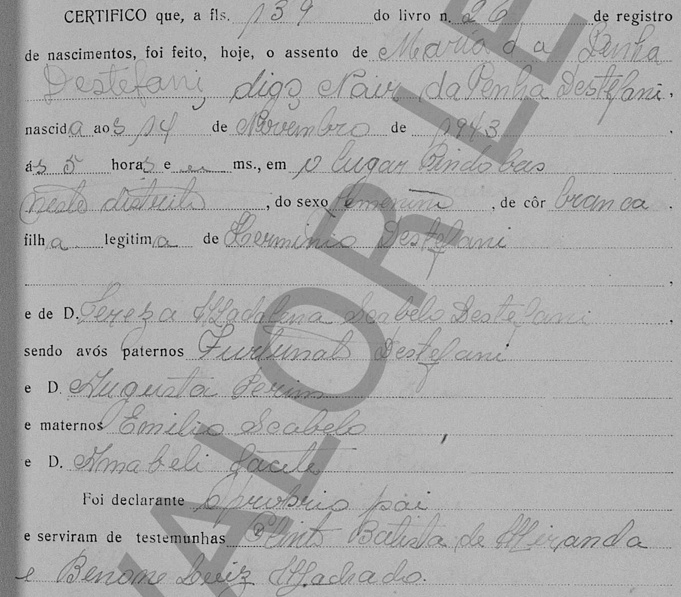 CERTIFICO que, a fls. 139 do livro n. 26 de registro
de nascimentos, foi feito, hoje, o assento de Maria d a Penha
Destefani, digo, Nair da Penha Destefani,
nascida aos 14 de Novembro de 1943.
ás 5 horas e ms., em o lugar Pindobas
neste distrito, do sexo femenino, de côr branca.
filha legitima de Herminio Destefani
e de D. Tereza Madalena Scabelo Destefani,
sendo avós paternos Furtunato Destefani
e D. Augusta
e maternos Emilio Scabelo,
e D. Amabeli
Foi declarante o proprio pai
e serviram de testemunhas Batista de Miranda
e Benone Luiz Machado.
VALOR LE